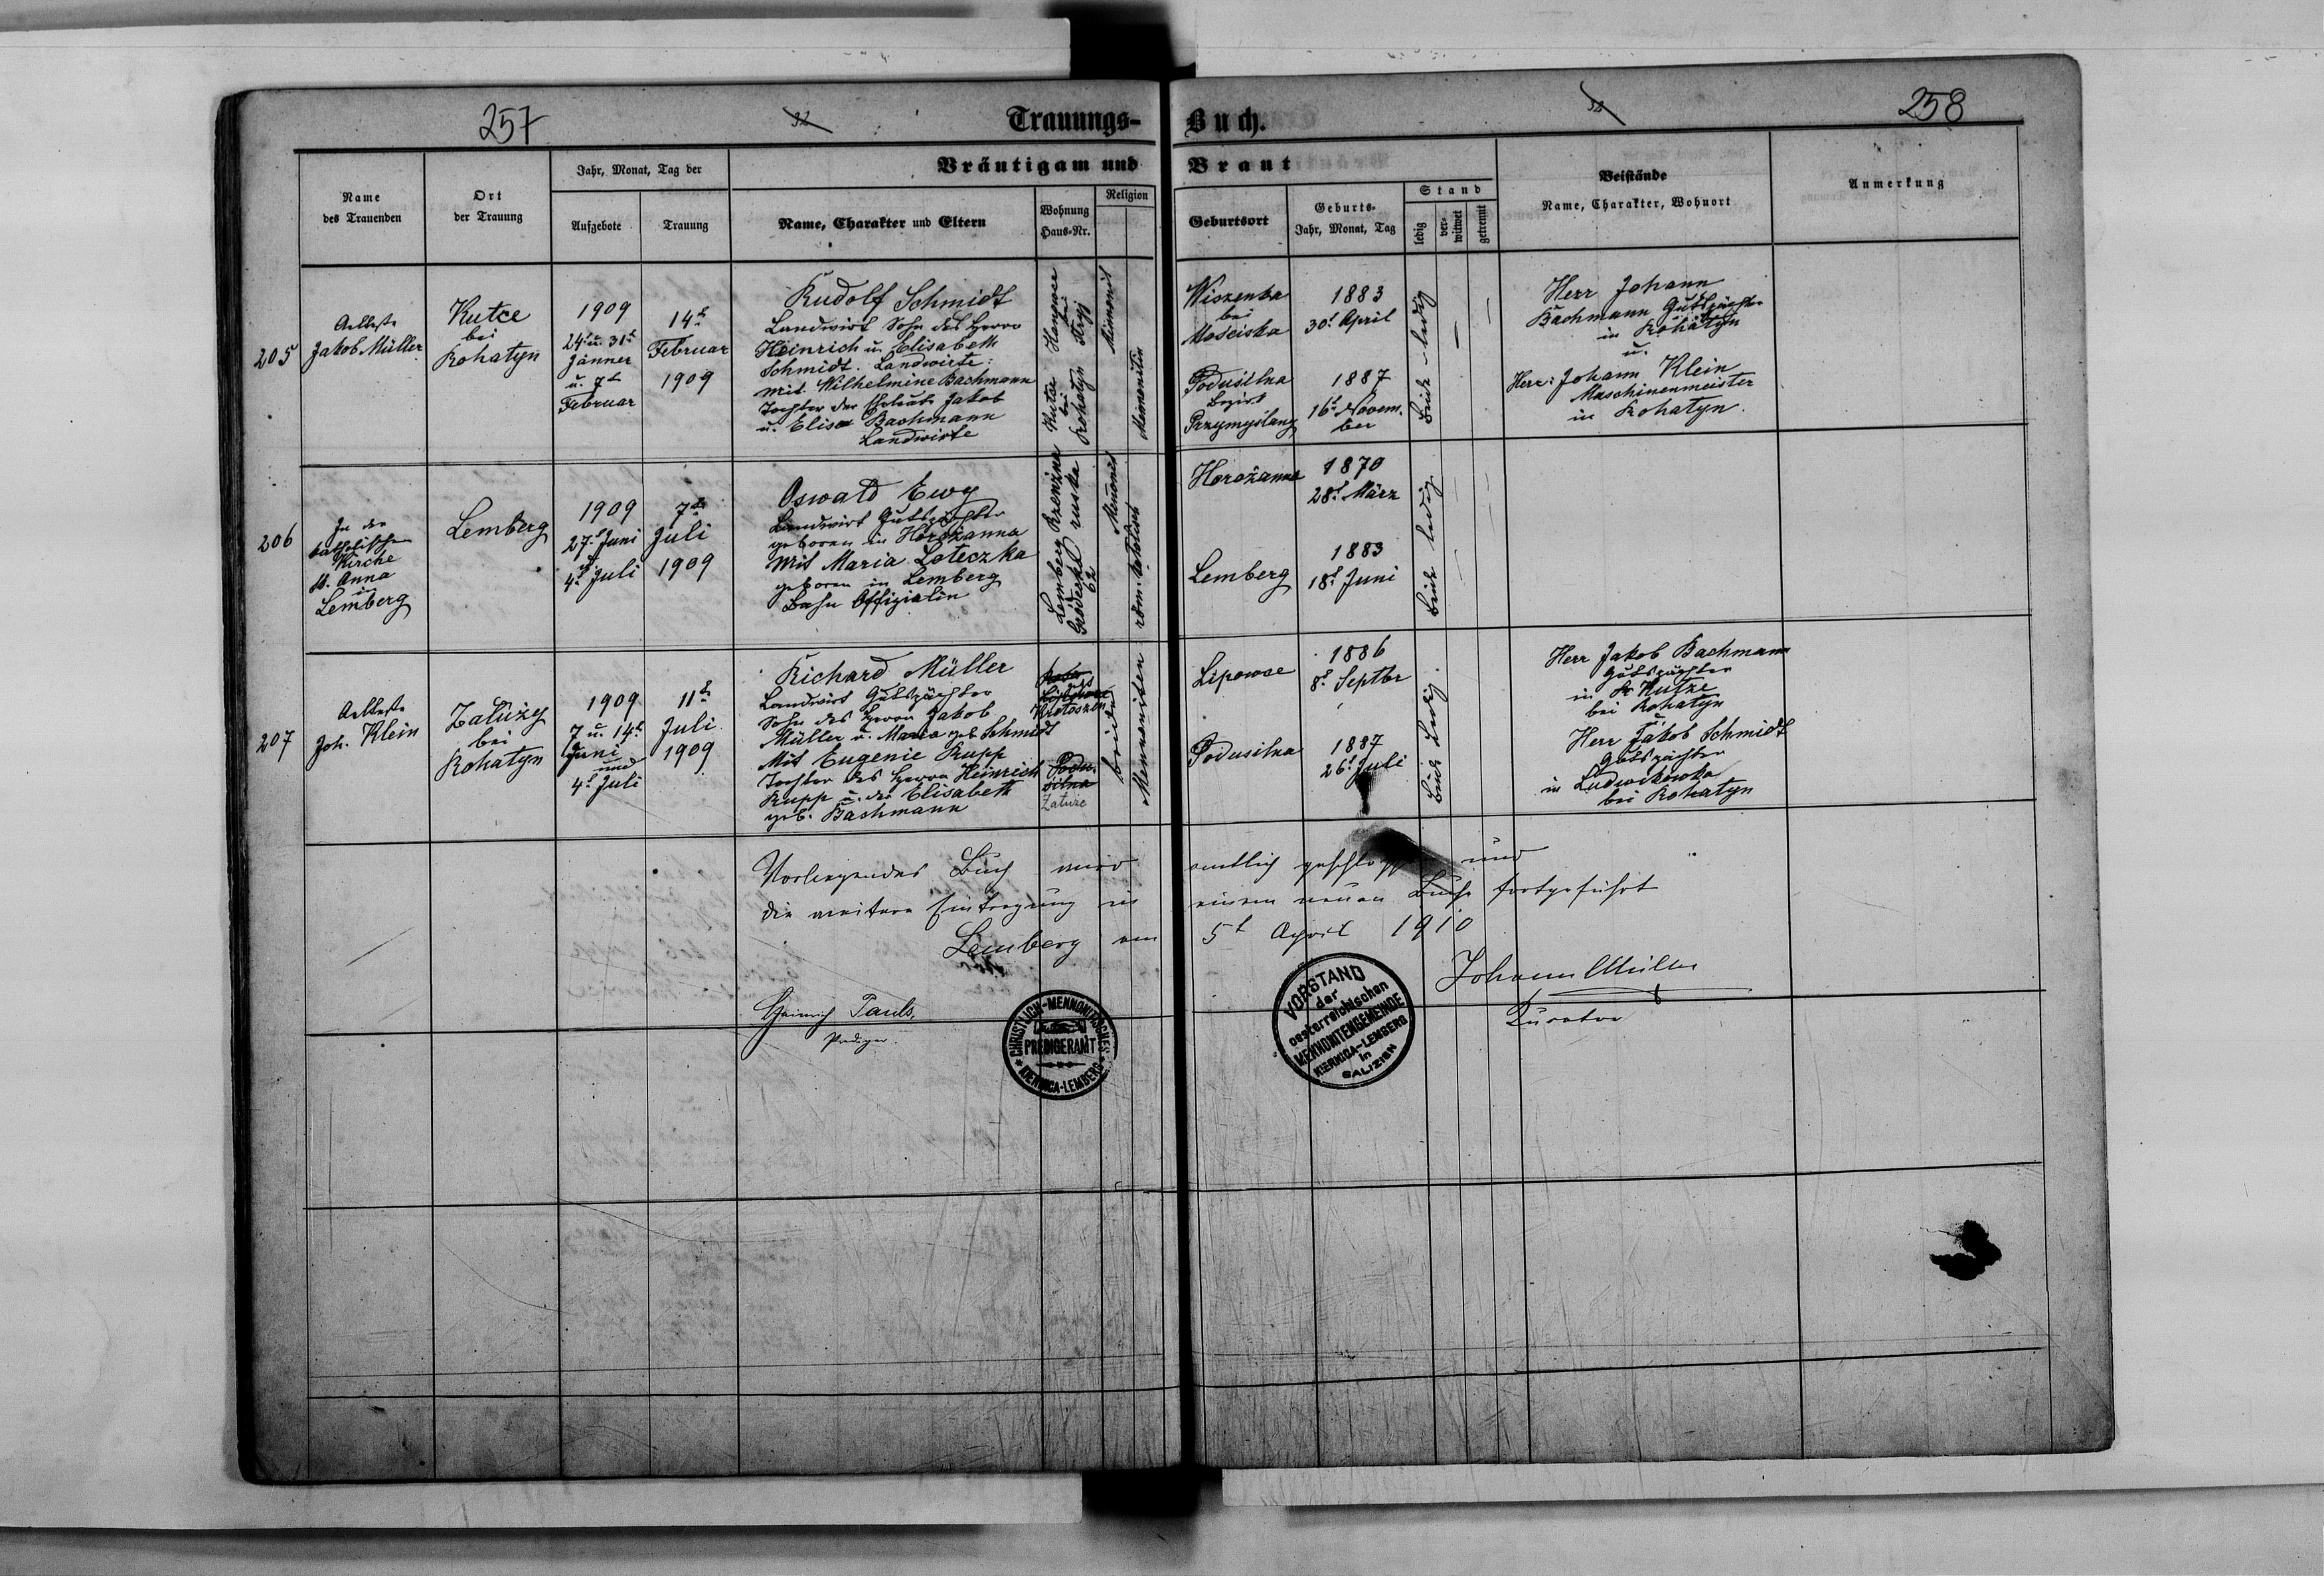 257
32
Trauungs-
Buch.
32
258
Name
des Trauenden
Ort
der Trauung
Jahr, Monat, Tag der
Aufgebote
Trauung
Bräutigam und
Braut
Name, Charakter und Eltern
Wohnung
Haus-Nr.
Religion
Geburtsort
Geburts-
Jahr, Monat, Tag
Stand
ledig
ver-
witwet
getrennt
Beistände
Name, Charakter, Wohnort
Anmerkung
205
Aelteste
Jakob Müller
Kutce
bei
Rohatyn
1909
24t u. 31t
Jänner
u. 7t
Februar
14t
Februar
1909
Rudolf Schmidt
Landwirt Sohn des Herrn
Heinrich u. Elisabeth
Schmidt. Landwirte:
mit Wilhelmine Bachmann
Tochter der Eheleute Jakob
u. Elise Bachmann
Landwirte
bei
Stryj
Kutce
bei
Rohatyn
Mennonit
Mennonitin
Wiszenka
bei
Mościska
1883
30t April
Podusilna
Bezirk
Przymyślany
1887
16t Novem.
ber
Beide ledig
Herr Johann
Bachmann Gutspächter
in Rohatyn
u.
Herr: Johann Klein
Maschinenmeister
in Rohatyn.
206
In der
katholischen
Kirche
St. Anna
in
Lemberg
Lemberg
1909
27t Juni
4t Juli
7t
Juli
1909
Oswald Ewy
Landwirt Gutspächter
geboren in Horożanna
mit Maria Loteczka
geboren in Lemberg
Bahn Offizialin
ruska
Lemberg
62
Mennonit
röm. katolisch
Horożanna
1870
28t März
Lemberg
1883
18t Juni
Beide ledig
207
Aelteste
Joh. Klein
Załuży
bei
Rohatyn
1909
7 u. 14t
Juni
und
4t Juli
11t
Juli
1909
Richard Müller
Landwirt Gutspächter
Sohn des Herrn Jakob
Müller u. Maria geb. Schmidt
Mit Eugenie Rupp
Tochter des Herrn Heinrich
Rupp u. der Elisabeth
geb. Bachmann
Podu-
silna
Załuże
beide
Mennoniten
Lipowce
1886
8t Septbr
Podusilna
1887
26t Juli
Beide ledig.
Herr Jakob Bachmann
Gutspächter
in Kutze
bei Rohatyn
u.
Herr Jakob Schmidt
Gutspächter
in Ludwikówka
bei Rohatyn
Vorliegendes Buch wird amtlich geschlossen und
die weitere Eintragung in einem neuen Buche fortgeführt
Lemberg am 5t April 1910
Heinrich Pauls,
Prediger.
CHRISTLICH-MENNONITISCHES
PREDIGERAMT
KIERNICA-LEMBERG
VORSTAND
der
oesterreichischen
MENNONITENGEMEINDE
KIERNICA-LEMBERG
in
GALIZIEN
Johann Müller
Kurator